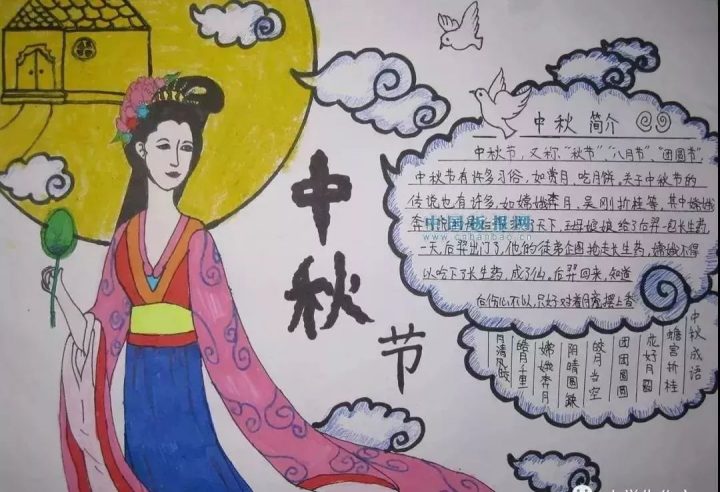 中秋节
中秋简介
中秋节，又称"秋节""八月节"、"团圆节"
中秋节有许多习俗，如赏月、吃月饼。关于中秋节的
传说也有许多，如嫦娥奔月、吴刚折桂等，其中嫦娥
奔月说了天下，王母娘娘给了后羿一包长生药
中国板报网
www.cnbanbao.cn
一天，后羿出门了，他的徒弟企图抢走长生药，嫦娥不得
以吃下了长生药，成了仙。后羿回来，知道
后伤心不以，只好对着月亮摆上香
中秋成语
蟾宫折桂
花好月圆
团团圆圆
皓月当空
阴晴圆缺
嫦娥奔月
皓月千里
月清风